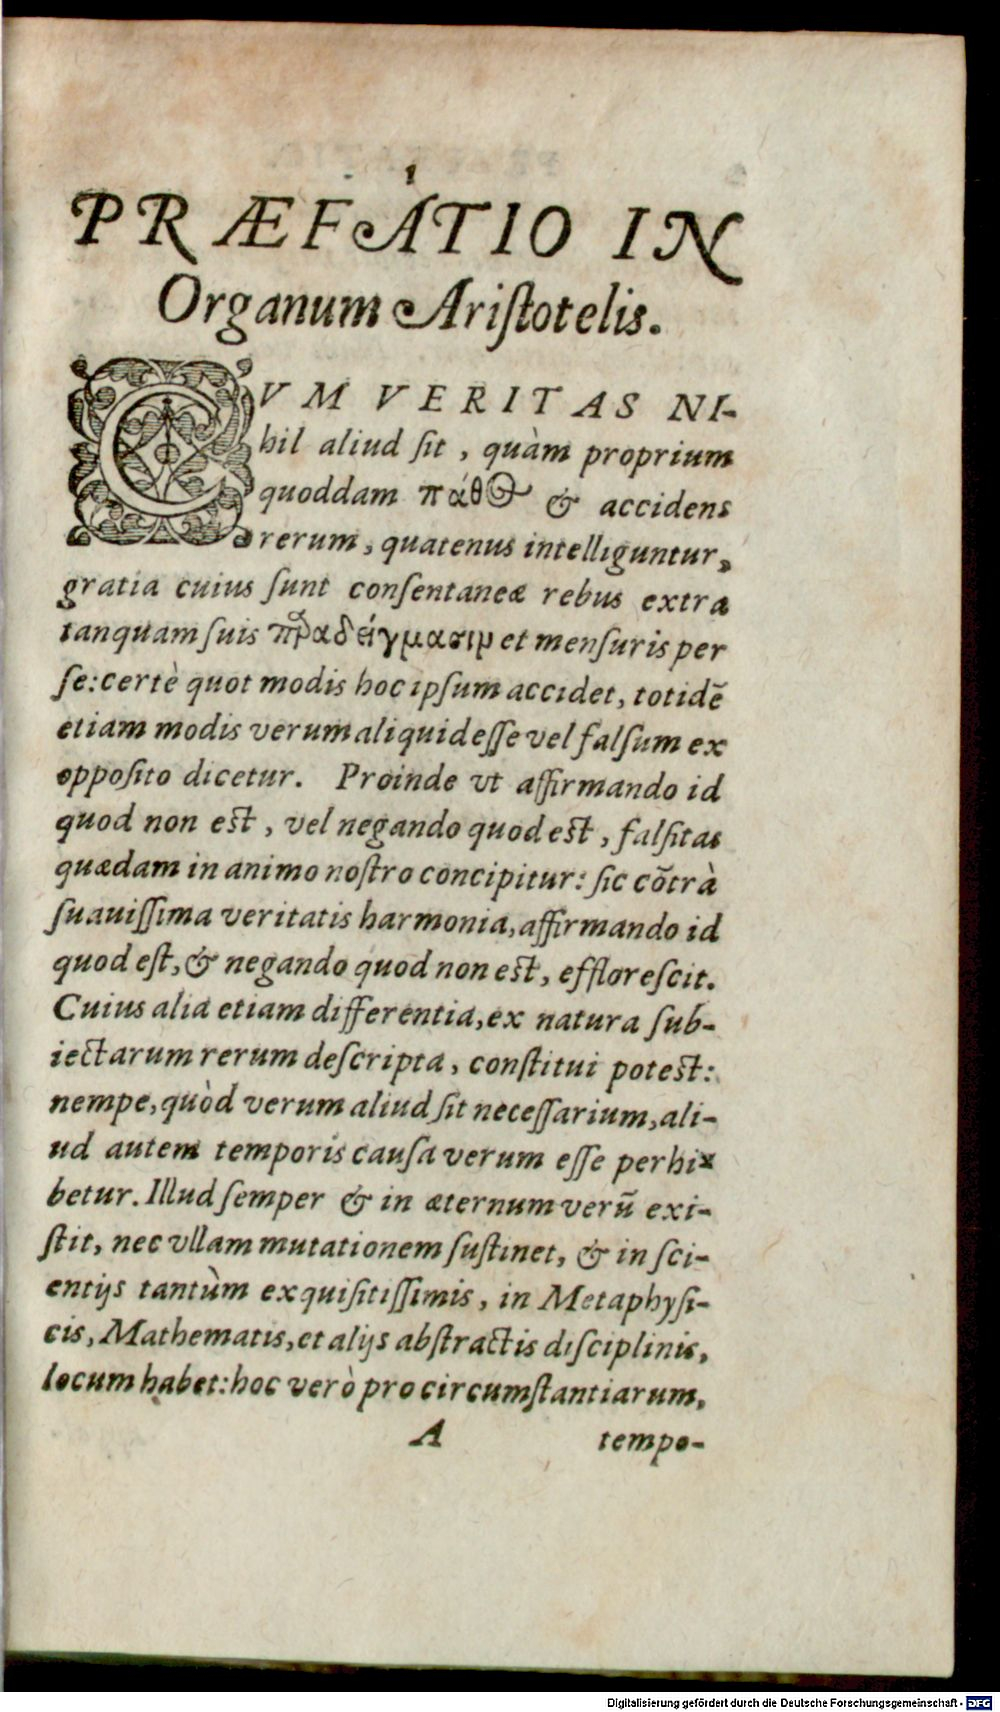 1
PRÆFATIO IN
Organum Aristotelis.
CVM VERITAS NI-
hil aliud sit, quàm proprium
quoddam πάθος & accidens
rerum, quatenus intelliguntur,
gratia cuius sunt consentaneæ rebus extra
tanquam suis παραδείγμασιν et mensuris per
se: certè quot modis hoc ipsum accidet, totidē
etiam modis verum aliquid esse vel falsum ex
opposito dicetur. Proinde vt affirmando id
quod non est, vel negando quod est, falsitas
quædam in animo nostro concipitur: sic cōtrà
suauissima veritatis harmonia, affirmando id
quod est, & negando quod non est, efflorescit.
Cuius alia etiam differentia, ex natura sub-
iectarum rerum descripta, constitui potest:
nempe, quòd verum aliud sit necessarium, ali-
ud autem temporis causa verum esse perhi-
betur. Illud semper & in æternum verū exi-
stit, nec vllam mutationem sustinet, & in sci-
entijs tantùm exquisitissimis, in Metaphysi-
cis, Mathematis, et alijs abstractis disciplinis,
locum habet: hoc verò pro circumstantiarum,
A tempo-
Digitalisierung gefördert durch die Deutsche Forschungsgemeinschaft - DFG